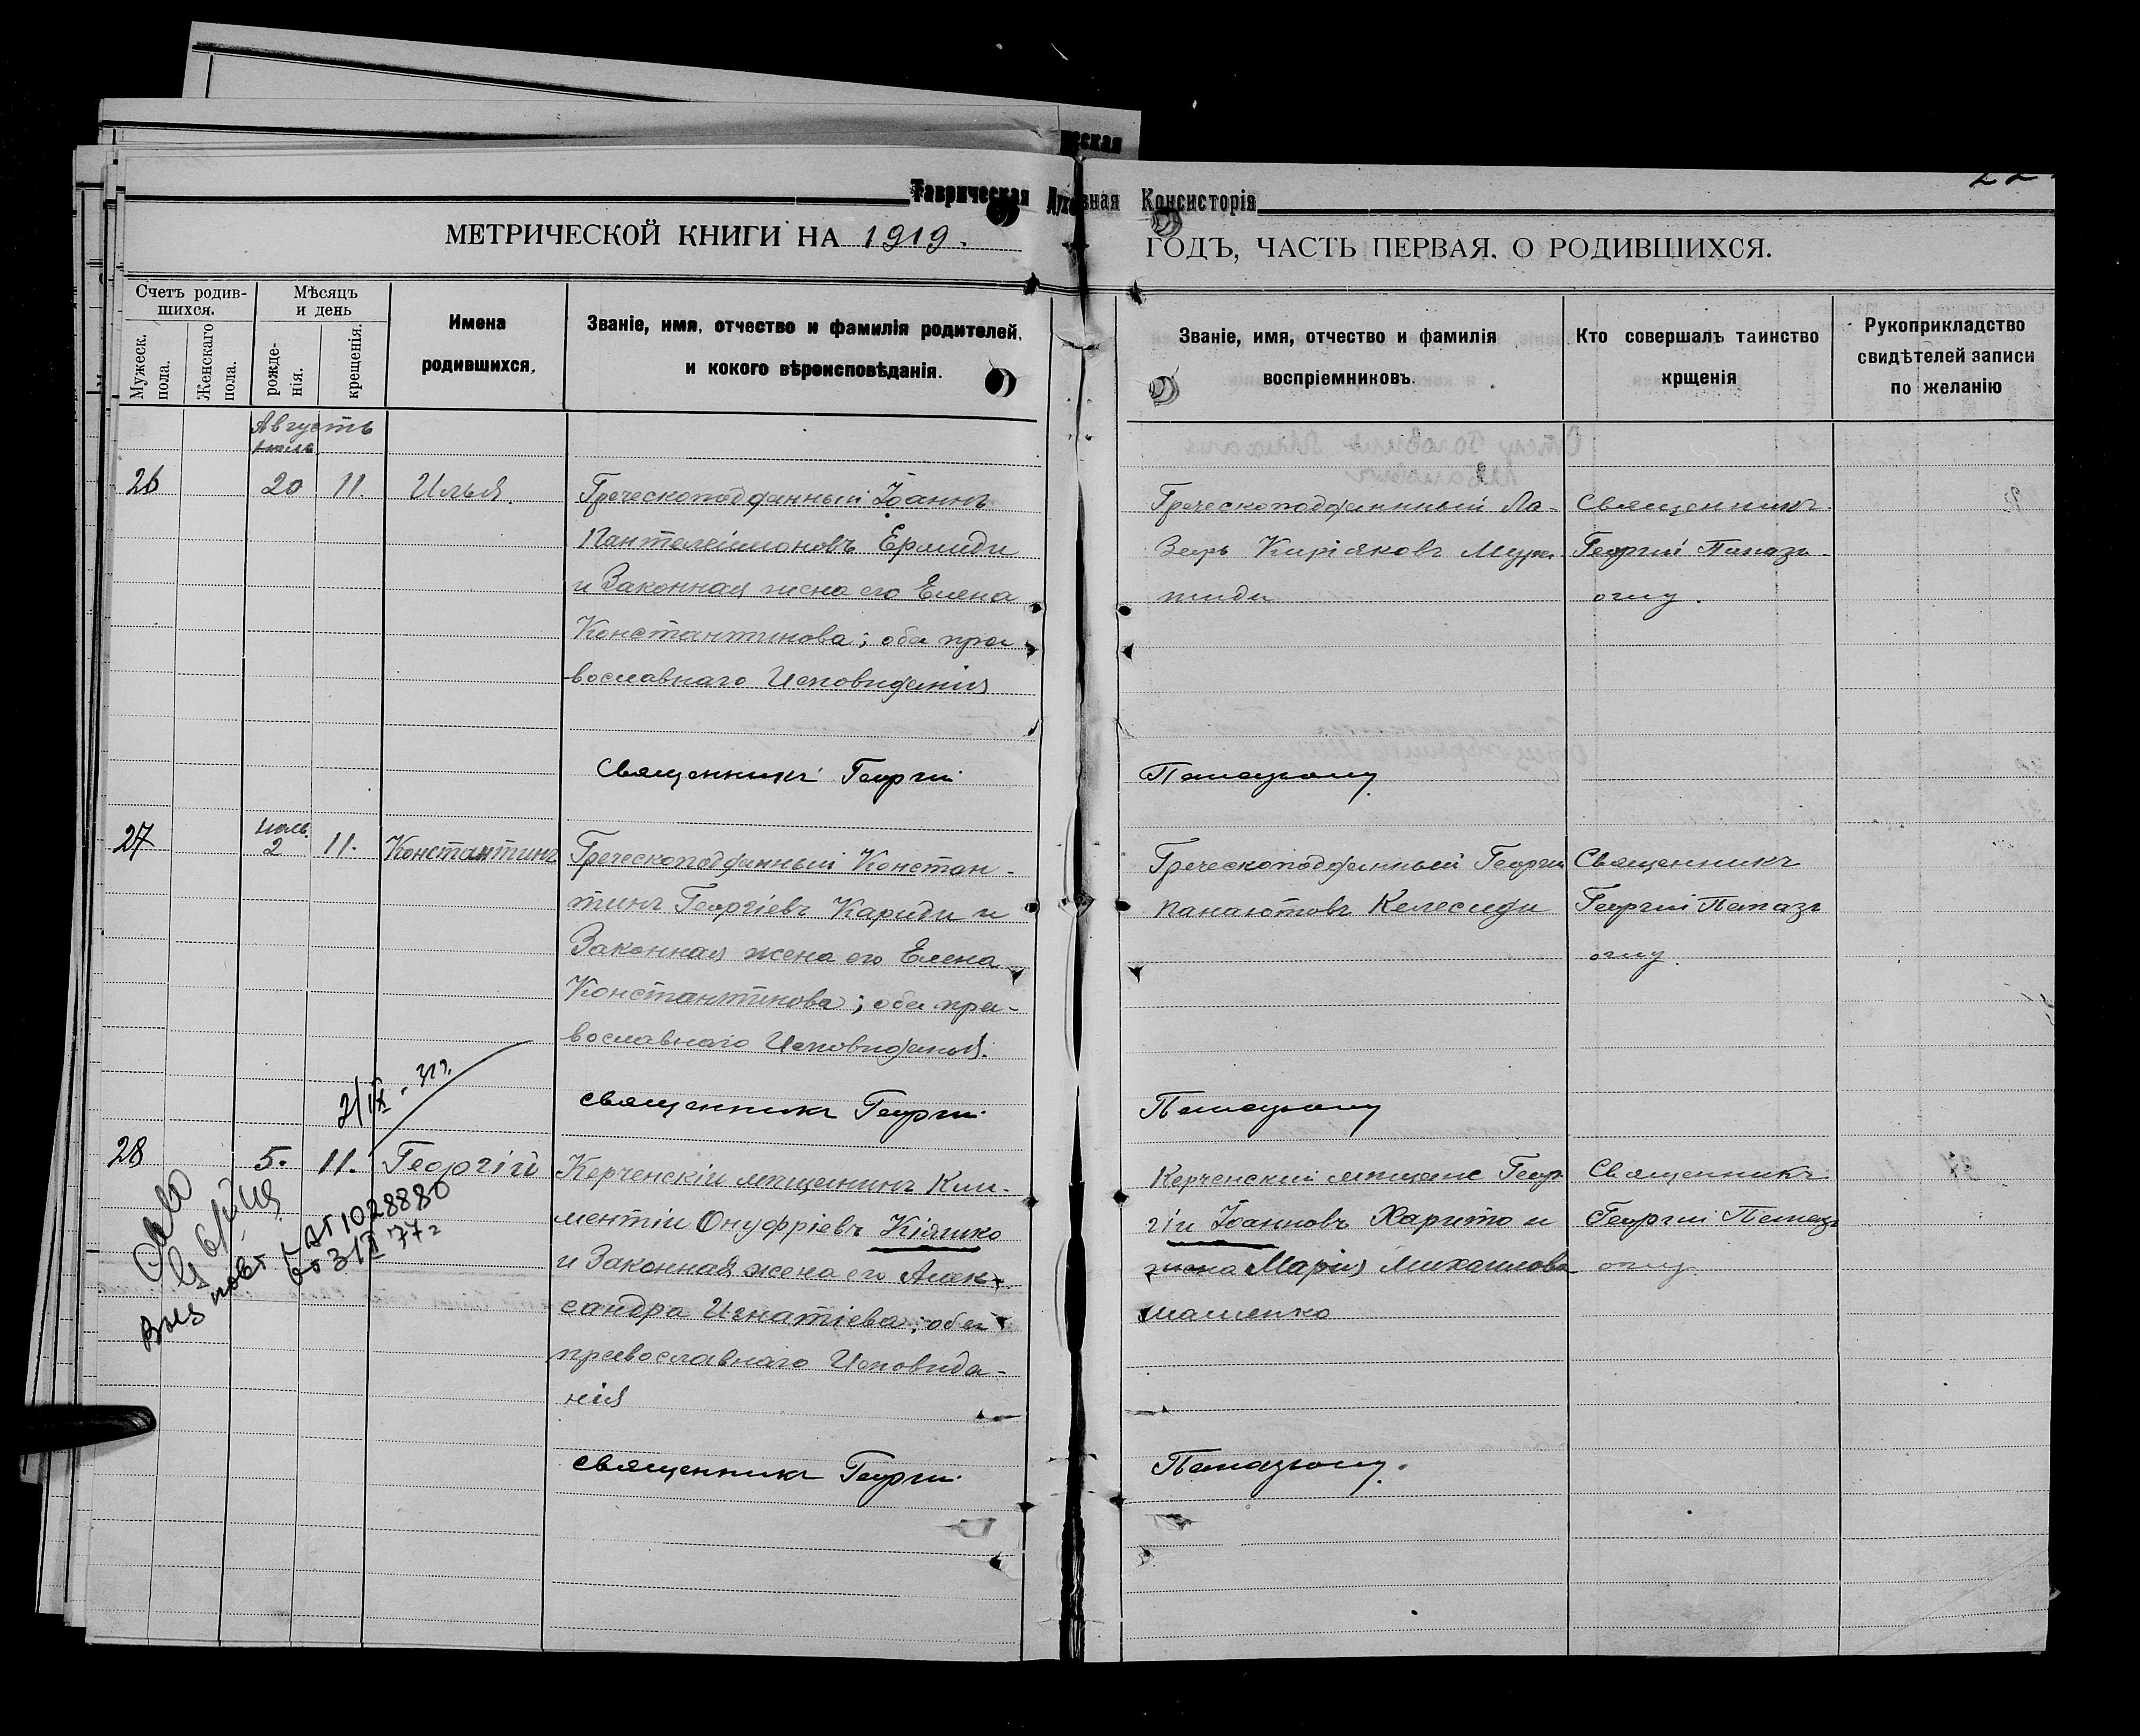 ческая
Таврическая Духовная Консисторія
МЕТРИЧЕСКОЙ КНИГИ НА 1919.
ГОДЪ, ЧАСТЬ ПЕРВАЯ. О РОДИВШИХСЯ.
Счетъ родив-
шихся.
Мужеск.
пола.
Женскаго
пола.
Мѣсяцъ
и день
рожде-
нія.
крещенія.
Имена
родившихся.
Званіе, имя, отчество и фамилія родителей,
и кокого вѣроисповѣданія.
Званіе, имя, отчество и фамилія
воспріемниковъ.
Кто совершалъ таинство
крщенія
Рукоприкладство
свидѣтелей записи
по желанію
Августъ
Іюль
26 20 11. Илья.
Греческоподданный Іоаннъ
Пантелеимоновъ Ермиди
и Законная жена его Елена
Константинова; оба пра
вославнаго Исповиданія
Греческоподданный Ла-
зарь Киріаковъ Мура-
тиди
Священникъ
Георгій Папаз-
оглу.
Священникъ Георгій
Папазоглу
27 Іюль 2 11. Константинъ
Греческоподданный Констан-
тинъ Георгіевъ Кариди и
Законная жена его Елена
Константинова; оба пра-
вославнаго Исповиданія.
Греческоподданный Георгій
Панаіотовъ Келесиди
Священникъ
Георгій Папаз
оглу.
священникъ Георгій
Папазоглу
28 5. 11. Георгій
Керченскій мещанинъ Кли-
ментій Онуфріевъ Кіяшко
и Законная жена его Алек-
сандра Игнатіева; оба
православнаго Исповида-
нія
Керченскій мещане Геор-
гій Іоанновъ Харито и
жена Марія Михаилова
Священникъ
Георгій Папаз
оглу
священникъ Георгій
Папазоглу.